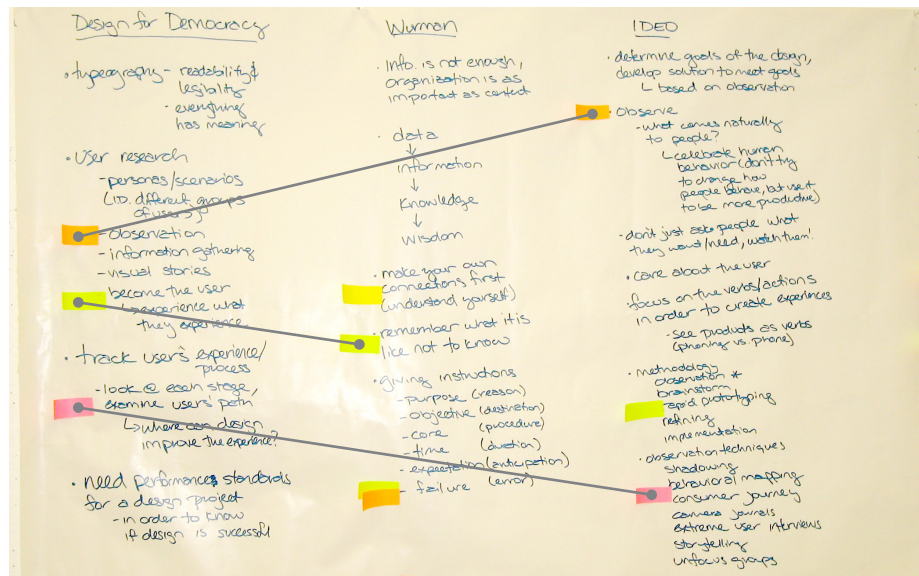 Design for Democracy
• typeography - readability &
legibility
- everything
has meaning
• user research
- personas/scenarios
(ID. different groups
of users)
- observation
- information gathering
- visual stories
- become the user
↳ experience what
they experience
• track user's experience/
process
- look @ each stage,
examine users' path
↳ where can design
improve the experience?
• need performance standards
for a design project
- in order to know
if design is successful
Wurman
• Info. is not enough,
organization is as
important as content
• data
↓
information
↓
knowledge
↓
wisdom
• make your own
connections first
(understand yourself)
• remember what it is
like not to know
• giving instructions
- purpose (reason)
- objective (destination)
- core (procedure)
- time (duration)
- expectation (anticipation)
- failure (error)
IDEO
• determine goals of the design,
develop solution to meet goals
↳ based on observation
• observe
- what comes naturally
to people?
↳ celebrate human
behavior (don't try
to change how
people behave, but use it
to be more productive)
- don't just ask people what
they want/need, watch them!
• care about the user
• focus on the verbs/actions
in order to create experiences
- see products as verbs
(phoning vs. phone)
• methodology
observation *
brainstorm
rapid prototyping
refining
implementation
• observation techniques
shadowing
behavioral mapping
consumer journey
camera journals
extreme user interviews
storytelling
unfocus groups